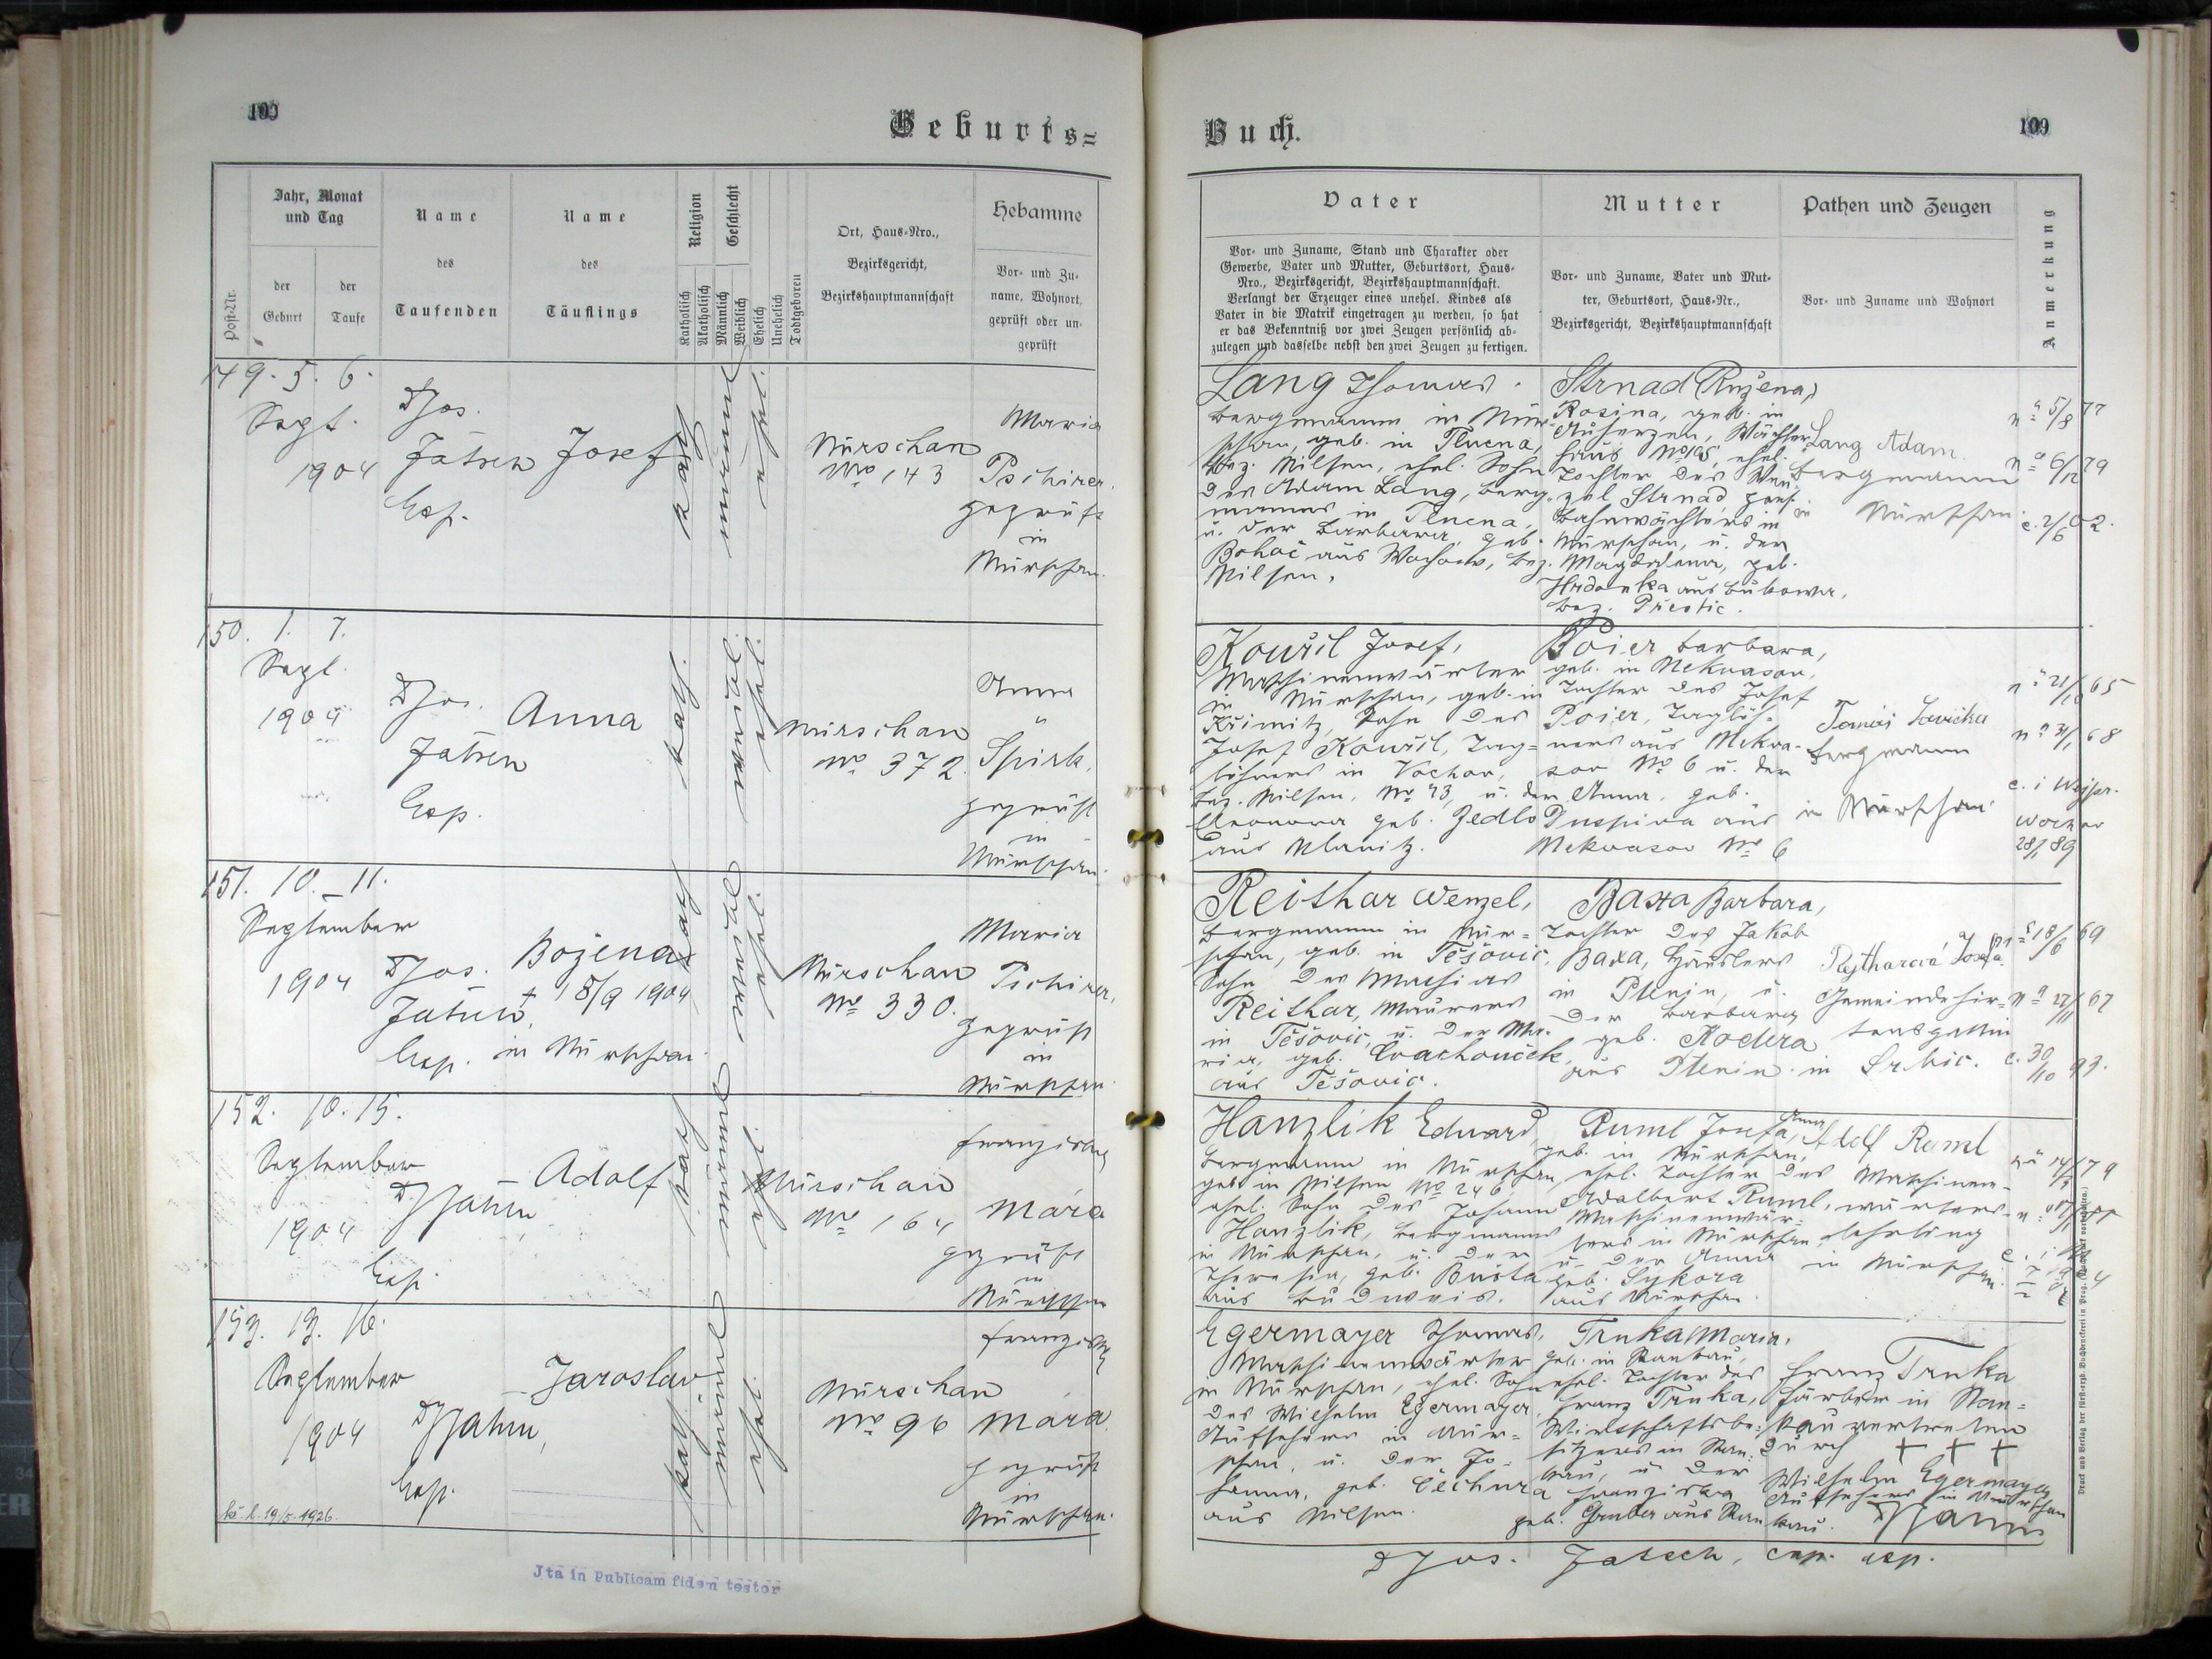 109
Geburts=
Post-Nr.
Jahr, Monat
und Tag
der
Geburt
der
Taufe
Name
des
Taufenden
Name
des
Täuflings
Religion
Katholisch
Akatholisch
Geschlecht
Männlich
Weiblich
Ehelich
Unehelich
Todtgeboren
Ort, Haus-Nro.,
Bezirksgericht,
Bezirkshauptmannschaft
Hebamme
Vor- und Zu-
name, Wohnort,
geprüft oder un-
geprüft
149. 5. 6.
Sept.
1904
Jos.
Jatsch
Cap.
Josef
kath.
männl.
ehel.
Nürschan
No 143
Maria
Pschirer,
geprüft
in
Nürschan.
150. 1. 7.
Sept.
1904
Jos.
Jatsch
Cap.
Anna
kath.
weibl.
ehel.
Nürschan
No 372.
Anna
Spirk,
geprüft
in
Nürschan.
151. 10. 11.
September
1904
Jos.
Jatsch,
Cap.
Božena
† 18/9 1904
in Nürschan.
kath.
weibl.
ehel.
Nürschan
No 330.
Maria
Pschirer,
geprüft
in
Nürschan.
152. 10. 15.
September
1904
Cap.
Adolf
kath.
männl.
ehel.
Nürschan
No 164
Franziska
Mára
geprüft
in
Nürschan
153. 13. 16.
September
1904
Cap.
Jaroslav
kath.
männl.
ehel.
Nürschan
No 96
Franziska
Mára
geprüft
in
Nürschan.
19/5. 1926.
Jta in Publicam fidem testor
Buch.
109
Vater
Vor- und Zuname, Stand und Charakter oder
Gewerbe, Vater und Mutter, Geburtsort, Haus-
Nro., Bezirksgericht, Bezirkshauptmannschaft.
Verlangt der Erzeuger eines unehel. Kindes als
Vater in die Matrik eingetragen zu werden, so hat
er das Bekenntniß vor zwei Zeugen persönlich ab-
zulegen und dasselbe nebst den zwei Zeugen zu fertigen.
Mutter
Vor- und Zuname, Vater und Mut-
ter, Geburtsort, Haus-Nr.,
Bezirksgericht, Bezirkshauptmannschaft
Pathen und Zeugen
Vor- und Zuname und Wohnort
Anmerkung
Lang Thomas.
Bergmann in Nür-
schan, geb. in Tlucna,
Bez. Pilsen, ehel. Sohn
des Adam Lang, Berg-
manns in Tlucna,
u. der Barbara, geb.
Bohač aus Wochow, Bez.
Pilsen.
Strnad (Ružena)
Rosina, geb. in
Auherzen, Wächter-
haus No 105, ehel.
Tochter des Wen-
zel Strnad, pens.
Bahnwächters in
Nürschan, u. der
Magdalena, geb.
Hrdonka aus Bukowa,
Bez. Přestic.
Lang Adam.
Bergmann
in Nürschan.
5/8 77
6/12 79
c. 2/6 02.
Kouřil Josef,
Maschinenwärter
in Nürschan, geb. in
Křimitz, Sohn des
Josef Kouřil, Tag-
löhners in Vochov,
Bez. Pilsen, No 43, u. der
Eleonora geb. Jedlo
aus Ulanitz.
Poier Barbara,
geb. in Nekvasov,
Tochter des Josef
Poier, Taglöh-
ners aus Nekva-
sov No 6 u. der
Anna, geb.
Duspiva aus
Nekvasov No 6
Bergmann
in Nürschan.
21/10 65
31/1 68
28/1 89
Reithar Wenzel,
Bergmann in Nür-
schan, geb. in Těšovic,
Sohn des Mathias
Reithar, Maurers
in Těšovic, u. der Ma-
ria, geb. Cvachouček,
aus Těšovic.
Baxa Barbara,
Tochter des Jakob
Baxa, Häuslers
in Ptenin, u.
der Barbara
geb. Kodera
aus Ptenin.
Rejtharová Josefa
Gemeindehir-
tensgattin
in Srbic.
18/6 69
27/11 67
c. 30/10 93.
Hanzlik Eduard,
Bergmann in Nürschan,
geb in Pilsen No 246,
ehel. Sohn des Johann
Hanzlik, Bergmanns
in Nürschan, u. der
Theresia, geb. Bušta
aus Budweis.
Ruml Josefa, Anna
geb. in Nürschan,
ehel. Tochter des
Adalbert Ruml,
Maschinenwär-
ters in Nürschan,
u. der Anna
geb. Sykora
aus Nürschan.
Adolf Ruml
Maschinen-
wärters-
lehrling
in Nürschan.
Egermayer Thomas,
Maschinenwärter
in Nürschan, ehel. Sohn
des Wilhelm Egermayer,
Aufsehers in Nür-
schan, u. der Jo-
hanna, geb. Čechura
aus Pilsen.
Trnka Maria,
geb. in Stankau,
ehel. Tochter des
Franz Trnka,
Wirtschaftsbe-
sitzers in Stan-
kau, u. der
Franziska
geb. Gruber aus Stankau.
Franz Trnka
Färber in Stan-
kau vertreten
durch + + +
Wilhelm Egermayer
Aufseher in Nürschan
Jos. Jatsch, cap. exp.